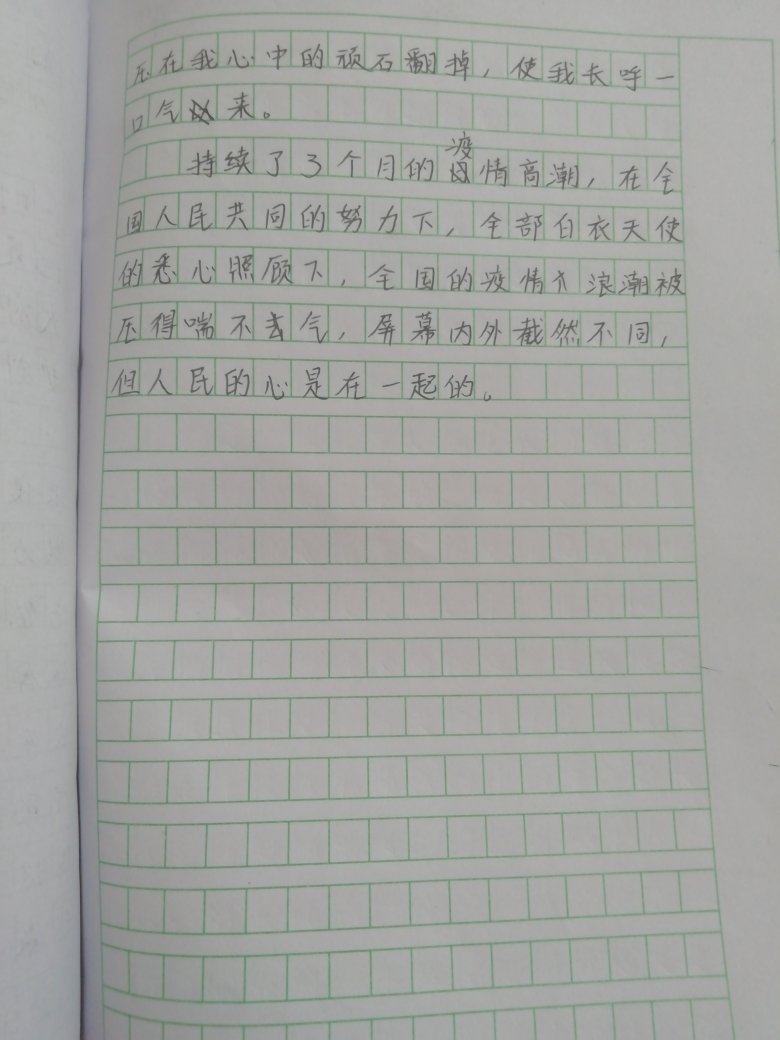 压在我心中的顽石翻掉，使我长呼一
口气来。
持续了3个月的疫情高潮，在全
国人民共同的努力下，全部白衣天使
的悉心照顾下，全国的疫情大浪潮被
压得喘不去气，屏幕内外截然不同，
但人民的心是在一起的。